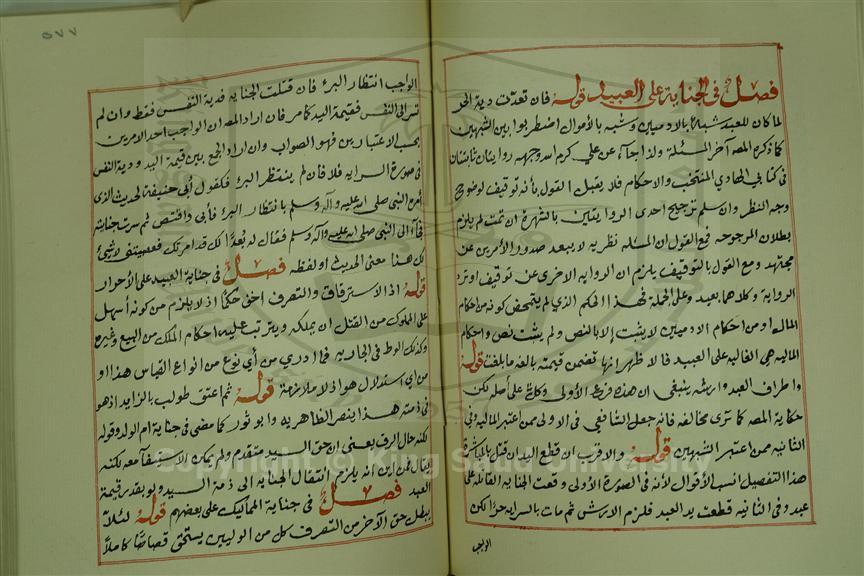 فصل في الجناية على العبيد قوله فان تعدت دية الحر
لما كان للعبد شبه بالادميين وشبه بالأموال اضطربوا بين الشبهين
كما ذكره المصـ آخر المسئلة ولذا جاء عن علي كرم الله وجهه روايتان ثابتتان
في كتابي الهادي المنتخب والاحكام فلا يقبل القول بأنه توقيف لوضوح
وجه النظر وان سلم ترجيح احدى الروايتين بالشهرة ان تمت لم يلزم
بطلان المرجوحة فمع القول ان المسئله نظريه لا يبعد صدور الأمرين عن
مجتهد ومع القول بالتوقيف يلزم ان الروايه الاخرى عن توقيف او ترد
الرواية وكلاهما بعيد وعلى الجملة فهذا الحكم الذي لم يتمحض كونه من احكام
المال او من احكام الادميين لا يثبت إلا بالنص ولم يثبت نص واحكام
الماليه هي الغالبه على العبيد فالاظهر انها تضمن قيمته بالغه ما بلغت قوله
واطراف العبد وارشه ينبغي ان هذه فرع الأولى وكل على أصله لكن
حكاية المصـ كما ترى مخالفه فانه جعل الشافعي في الاولى ممن اعتبر الماليه وفي
الثانيه ممن اعتبر الشبهين قوله والاقرب ان قطع اليد ان قتل بالمباشرة
هذا التفصيل انسب الأقوال لأنه في الصورة الأولى وقعت الجناية القاتله على
عبد وفي الثانيه قطعت يد العبد فلزم الارش ثم مات بالسرايه حرا لكن
الواجب
٥٧٧
الواجب انتظار البرء فان قتلت الجنايه فدية النفس فقط وان لم
تسر الى النفس فقيمة اليد كما مر فان اراد المصـ ان الواجب احد الامرين
بحسب الاعتبارين فهو الصواب وان اراد الجمع بين قيمة اليد ودية النفس
في صورة السرايه فلا فان لم ينتظر البرء فكقول أبي حنيفة لحديث الذي
أمره النبي صلى الله عليه وآله وسلم بانتظار البرء فأبى واقتص ثم سرت جنايته
فجاء الى النبي صلى الله عليه وآله وسلم فقال له بعدا لك قد امرتك فعصيتني لا شيء
لك هذا معنى الحديث او لفظه فصل في جناية العبيد على الأحرار
قوله اذ الاسترقاق والتصرف اخف حكما اذ لا يلزم من كونه أسهل
على المملوك من القتل ان يملكه ويترتب عليه احكام الملك من البيع وغيره
وكذلك الوطء في الجاريه فما ادري من أي نوع من انواع القياس هذا او
من أي استدلال هو اذ لا ملازمة قوله ثم اعتق طولب بالزايد اذ هو
في ذمته هذا ينصر الظاهريه وابو ثور كما مضى في جناية ام الولد وقوله
لكنه حال الرق يعني ان حق السيد متقدم ولم يمكن الاستيفاء معه لكنه
يقال فمن اين انه يلزم انتقال الجناية الى ذمة السيد ولو بقدر قيمة
العبد فصل في جناية المماليك على بعضهم قوله لئلا
يبطل حق الآخر من التصرف كل من الوليين يستحق قصاصا كاملا
Copyright © King Saud University
1957